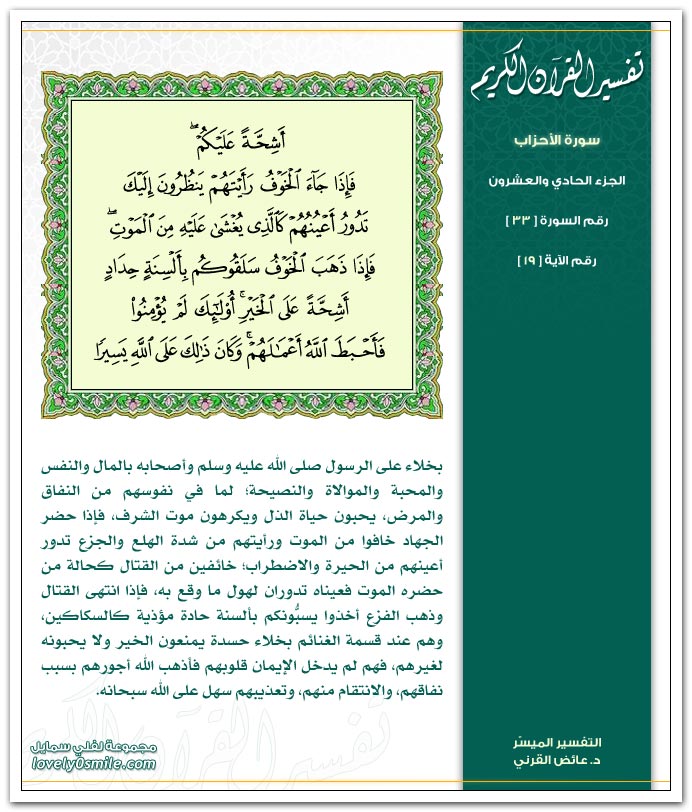 تفسير القرآن الكريم
سورة الأحزاب
الجزء الحادي والعشرون
رقم السورة [ ٣٣ ]
رقم الآية [ ١٩ ]
أَشِحَّةً عَلَيْكُمْ ۖ
فَإِذَا جَآءَ ٱلْخَوْفُ رَأَيْتَهُمْ يَنظُرُونَ إِلَيْكَ
تَدُورُ أَعْيُنُهُمْ كَٱلَّذِى يُغْشَىٰ عَلَيْهِ مِنَ ٱلْمَوْتِ ۖ
فَإِذَا ذَهَبَ ٱلْخَوْفُ سَلَقُوكُم بِأَلْسِنَةٍ حِدَادٍ
أَشِحَّةً عَلَى ٱلْخَيْرِ ۚ أُو۟لَٰٓئِكَ لَمْ يُؤْمِنُوا۟
فَأَحْبَطَ ٱللَّهُ أَعْمَٰلَهُمْ ۚ وَكَانَ ذَٰلِكَ عَلَى ٱللَّهِ يَسِيرًا
بخلاء على الرسول صلى الله عليه وسلم وأصحابه بالمال والنفس
والمحبة والموالاة والنصيحة؛ لما في نفوسهم من النفاق
والمرض، يحبون حياة الذل ويكرهون موت الشرف، فإذا حضر
الجهاد خافوا من الموت ورأيتهم من شدة الهلع والجزع تدور
أعينهم من الحيرة والاضطراب؛ خائفين من القتال كحالة من
حضره الموت فعيناه تدوران لهول ما وقع به، فإذا انتهى القتال
وذهب الفزع أخذوا يسبُّونكم بألسنة حادة مؤذية كالسكاكين،
وهم عند قسمة الغنائم بخلاء حسدة يمنعون الخير ولا يحبونه
لغيرهم، فهم لم يدخل الإيمان قلوبهم فأذهب الله أجورهم بسبب
نفاقهم، والانتقام منهم، وتعذيبهم سهل على الله سبحانه.
التفسير الميسّر
د. عائض القرني
مجموعة لفلي سمايل
lovely0smile.com
تفسير القرآن الكريم